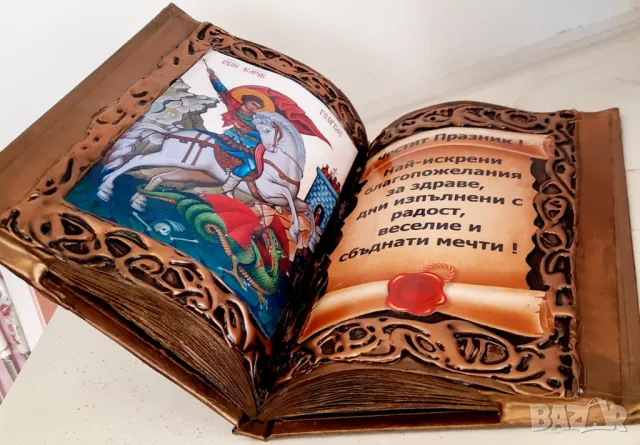 СВИ ВМЧК
ГЕОРГИЙ
Честит Празник !
Най-искрени
благопожелания
за здраве,
дни изпълнени с
радост,
веселие и
сбъднати мечти !
BAZAR.bg